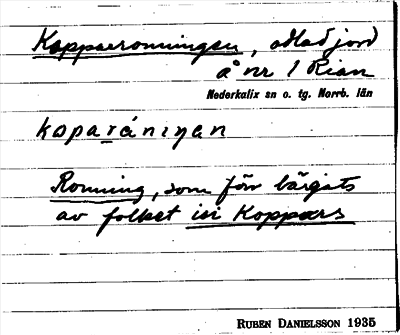 Kopparronningen, odlad jord
å nr 1 Rian
Nederkalix sn o. tg. Norrb. län
kopaŕániŋen
Ronning, som förr bärgats
av folket isi Koppars
RUBEN DANIELSSON 1935